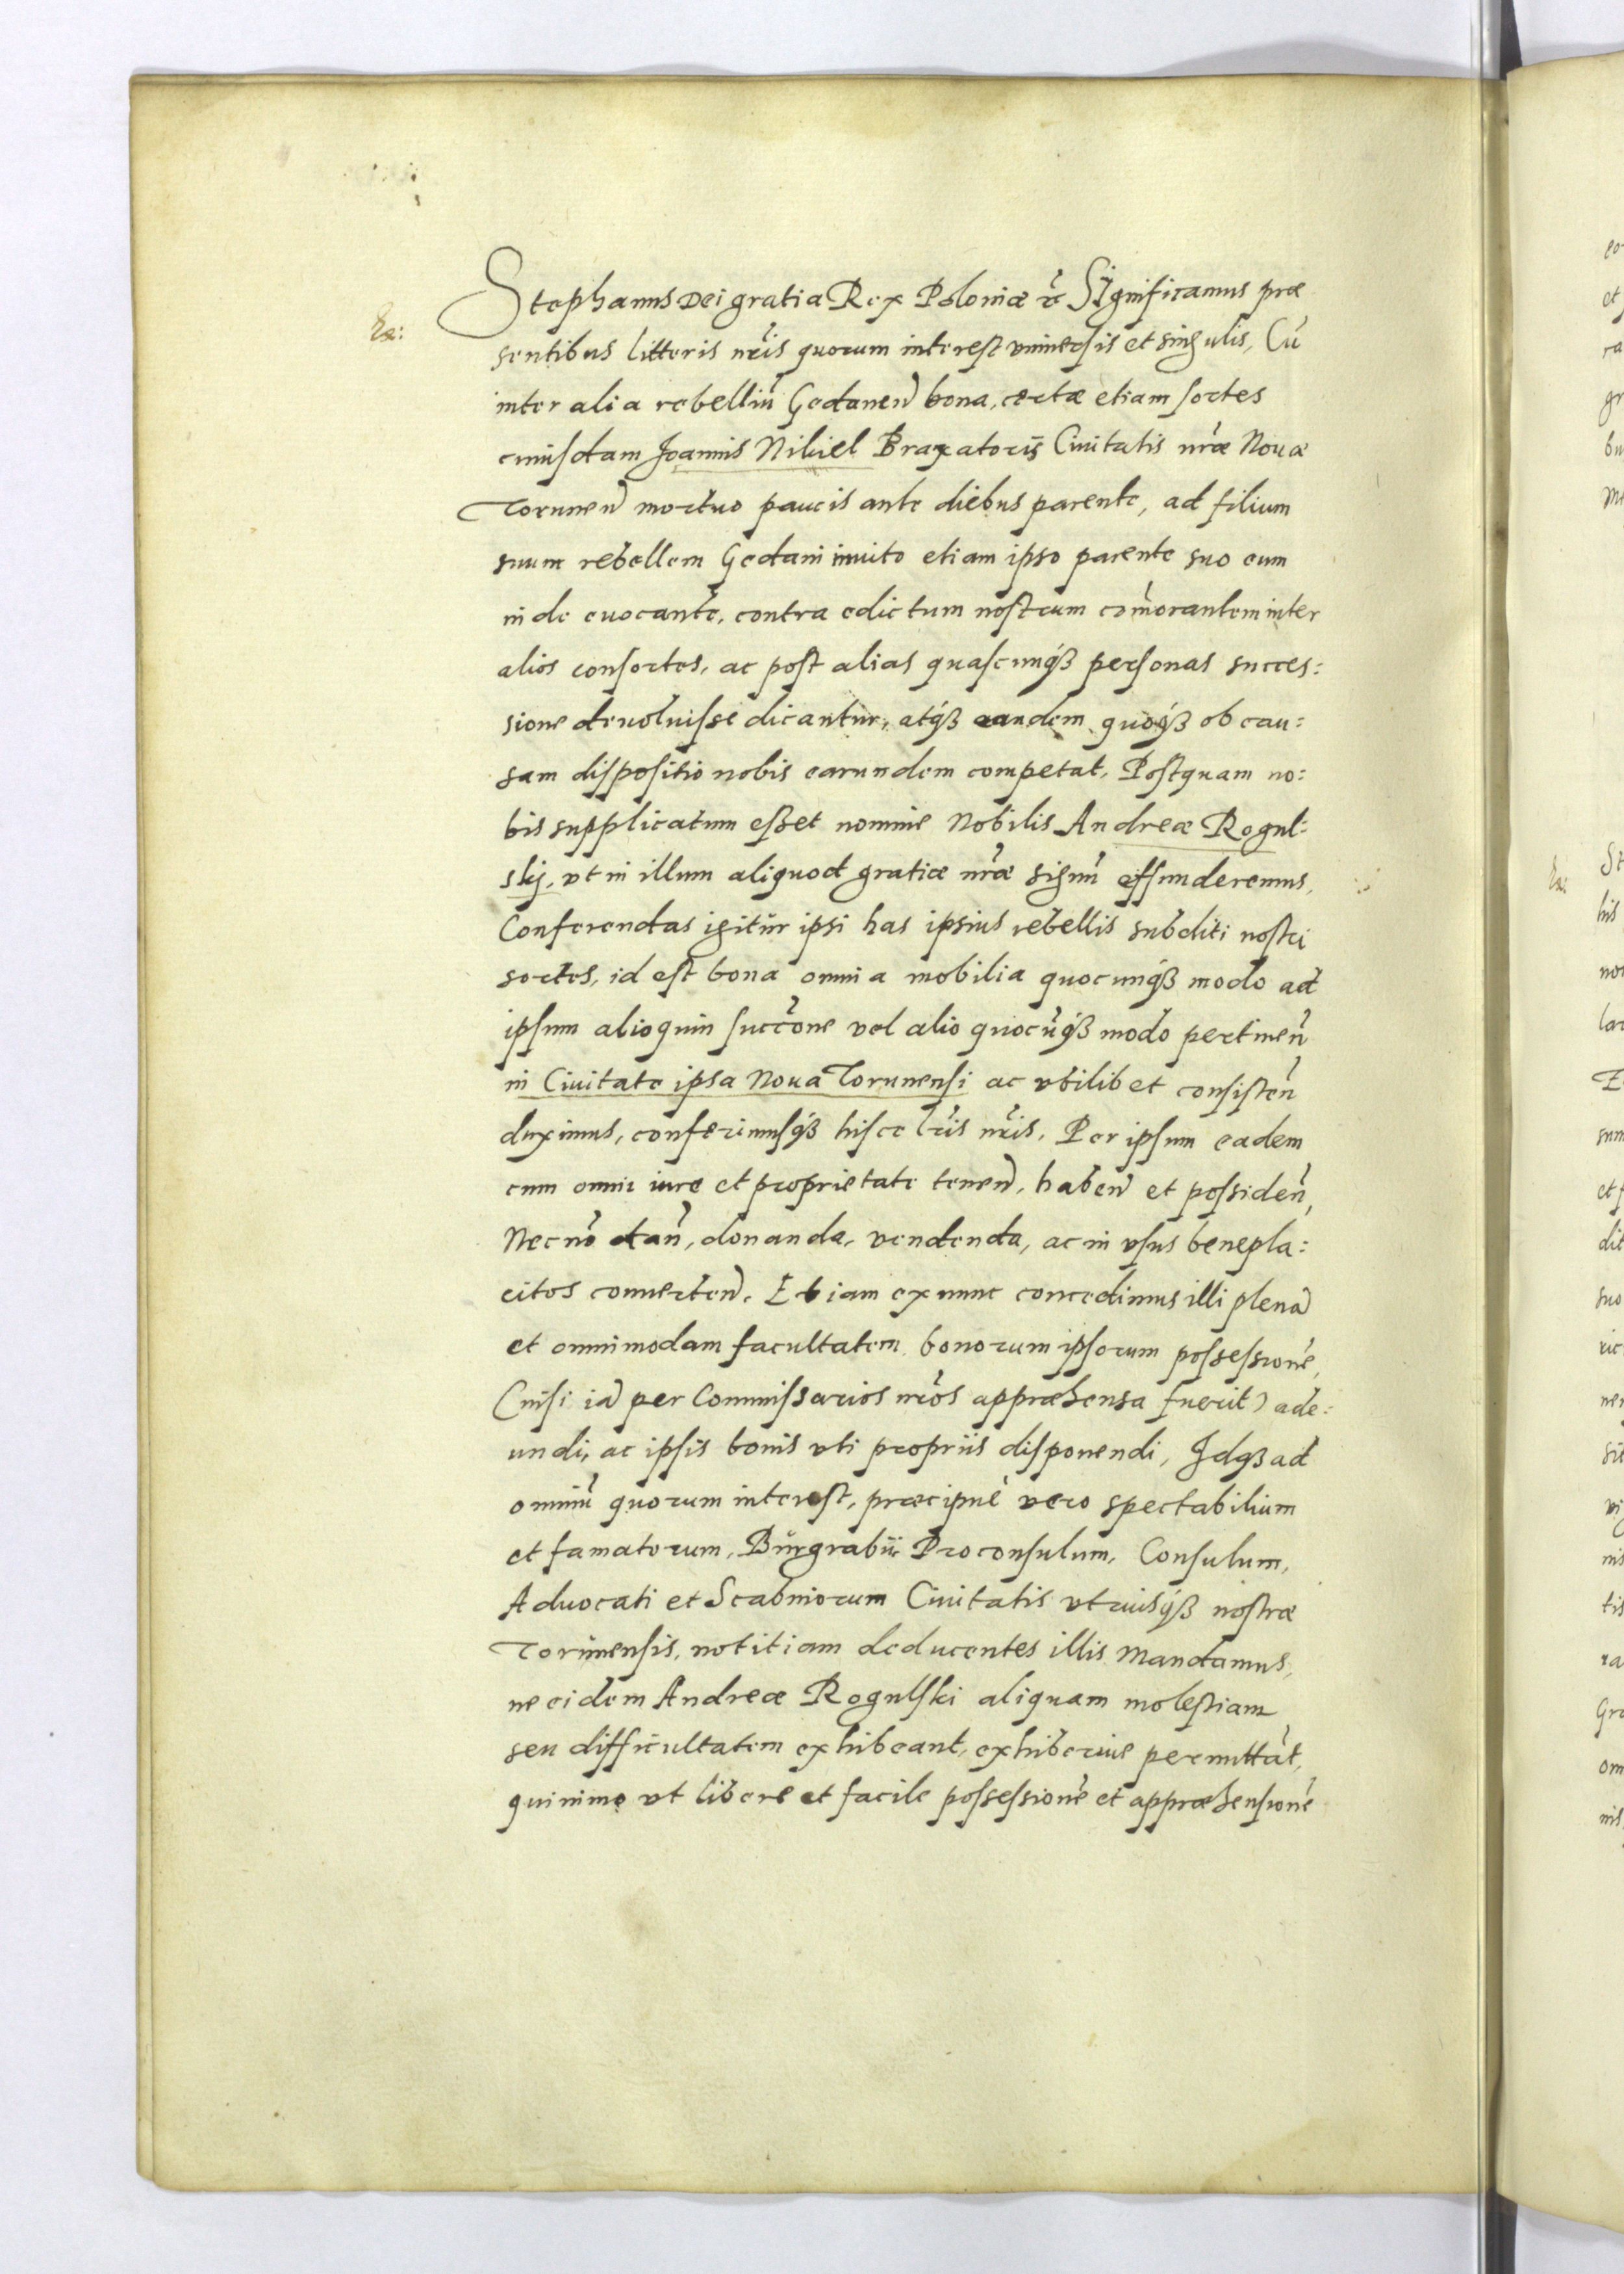 Stephanus Dei gratia Rex Poloniæ &c̃ Significamus præ
Ex:
sentibus litteris nr̃is quorum interest vniuersis et singulis, Cũ
inter alia rebelliũ Gedanen̄ bona, certæ etiam sortes
cuiusdam Joannis Nikiel Braxatoris Ciuitatis nr̃æ Nouæ
Torunen̄ mortuo paucis ante diebus parente, ad filium
suum rebellem Gedani inuito etiam ipso parente suo eum
inde euocante, contra edictum nostrum com̃orantem inter
alios consortes, ac post alias quascunq́ꝫ personas succes:
sione deuoluisse dicantur, atq́ꝫ eandem quoq́ꝫ ob cau:
sam dispositio nobis earundem competat, Postquam no:
bis supplicatum eßet nomine Nobilis Andreæ Rogul:
skj, vt in illum aliquod gratiæ nr̃æ signũ effunderemus,
Conferendas igitur ipsi has ipsius rebellis subditi nostri
sortes, id est bona omnia mobilia quocunq́ꝫ modo ad
ipsum alioquin succc̃one vel alio quocũq́ꝫ modo pertinen̄
in Ciuitate ipsa Noua Torunensi ac vbilibet consisten̄
duximus, conferimusq́ꝫ hisce lr̃is nr̃is, Per ipsum eadem
cum omni iure et proprietate tenen̄, haben̄ et possiden̄,
Necnõ dan̄, donanda, vendenda, ac in vsus benepla:
citos conuerten̄. Etiam ex nunc concedimus illi plenã
et omnimodam facultatem bonorum ipsorum possessionẽ,
(nisi iã per Commissarios nr̃os appræhensa fuerit) ade:
undi, ac ipsis bonis vti propriis disponendi, Idqꝫ ad
omniũ quorum interest, præcipuè vero spectabilium
et famatorum, Burgrabii Proconsulum, Consulum,
Aduocati et Scabinorum Ciuitatis vtriusq́ꝫ nostræ
Torunensis, notitiam deducentes illis Mandamus,
ne eidem Andreæ Rogulski aliquam molestiam
seu difficultatem exhibeant, exhiberiue permittãt,
quinimo vt libere et facile possessionẽ et appræhensionẽ